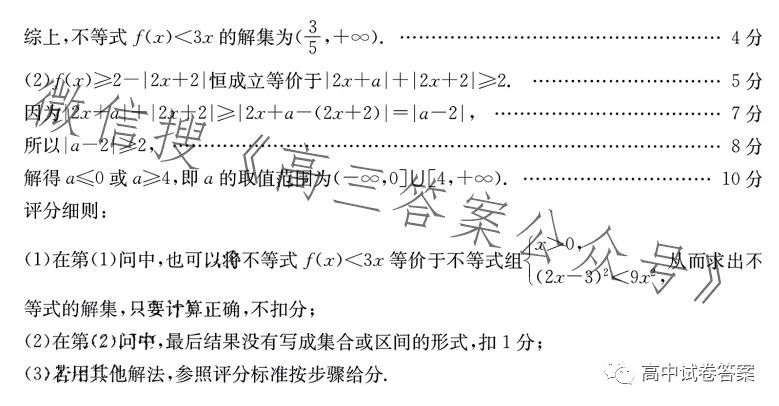 综上,不等式 f(x)<3x 的解集为(3/5,+∞). …… 4 分
(2)f(x)≥2-|2x+2|恒成立等价于|2x+a|+|2x+2|≥2. …… 5 分
因为|2x+a|+|2x+2|≥|2x+a-(2x+2)|=|a-2|, …… 7 分
所以|a-2|≥2, …… 8 分
解得 a≤0 或 a≥4,即 a 的取值范围为(-∞,0]∪[4,+∞). …… 10 分
评分细则:
(1)在第(1)问中,也可以将不等式 f(x)<3x 等价于不等式组{x>0, (2x-3)²<9x², 从而求出不
等式的解集,只要计算正确,不扣分;
(2)在第(2)问中,最后结果没有写成集合或区间的形式,扣 1 分;
(3)若用其他解法,参照评分标准按步骤给分.
微信搜《高三答案公众号》
高中试卷答案